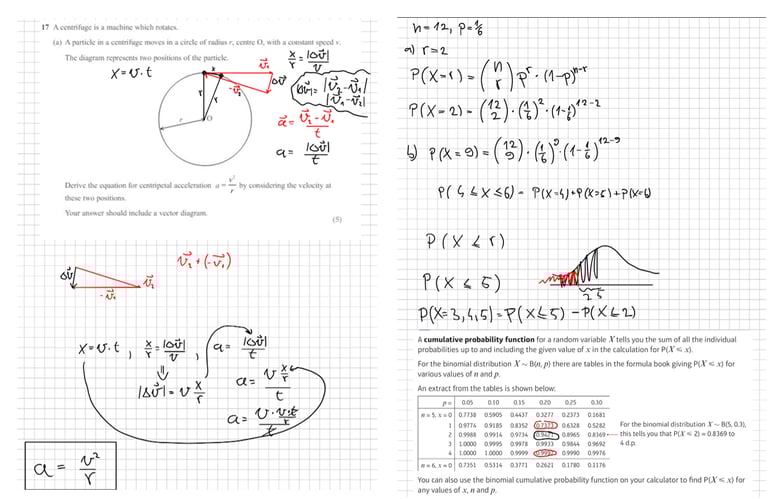 17 A centrifuge is a machine which rotates.
(a) A particle in a centrifuge moves in a circle of radius r, centre O, with a constant speed v.
The diagram represents two positions of the particle.
x = v · t
x
v⃗₁
-v⃗₂
Δv⃗
r
r
r
O
x/r = |Δv⃗|/v
|Δv⃗| = |v⃗₂-v⃗₁|
|v⃗₁-v⃗₂|
a⃗ = (v⃗₂-v⃗₁)/t
a = |Δv⃗|/t
Derive the equation for centripetal acceleration a = v²/r by considering the velocity at
these two positions.
Your answer should include a vector diagram.
(5)
v⃗₂ + (-v⃗₁)
Δv⃗
v⃗₂
-v⃗₁
x = v · t , x/r = |Δv⃗|/v , a = |Δv⃗|/t
|Δv⃗| = v x/r
a = (v x/r)/t
a = (v · (v·t)/r)/t
a = v²/r
n = 12, p = 1/6
a) r = 2
P(X=r) = (n r) pʳ · (1-p)ⁿ⁻ʳ
P(X=2) = (12 2) · (1/6)² · (1-1/6)¹²⁻²
b) P(X=9) = (12 9) · (1/6)⁹ · (1-1/6)¹²⁻⁹
P(4 ≤ X ≤ 6) = P(X=4)+P(X=5)+P(X=6)
P(X ≤ r)
P(X ≤ 5)
2 5
P(X=3,4,5) = P(X≤5) - P(X≤2)
A cumulative probability function for a random variable X tells you the sum of all the individual
probabilities up to and including the given value of x in the calculation for P(X ≤ x).
For the binomial distribution X ~ B(n, p) there are tables in the formula book giving P(X ≤ x) for
various values of n and p.
An extract from the tables is shown below:
p = 0.05 0.10 0.15 0.20 0.25 0.30
n = 5, x = 0 0.7738 0.5905 0.4437 0.3277 0.2373 0.1681
1 0.9774 0.9185 0.8352 0.7373 0.6328 0.5282
2 0.9988 0.9914 0.9734 0.9421 0.8965 0.8369
3 1.0000 0.9995 0.9978 0.9933 0.9844 0.9692
4 1.0000 1.0000 0.9999 0.9997 0.9990 0.9976
n = 6, x = 0 0.7351 0.5314 0.3771 0.2621 0.1780 0.1176
For the binomial distribution X ~ B(5, 0.3),
this tells you that P(X ≤ 2) = 0.8369 to
4 d.p.
You can also use the binomial cumulative probability function on your calculator to find P(X ≤ x) for
any values of x, n and p.